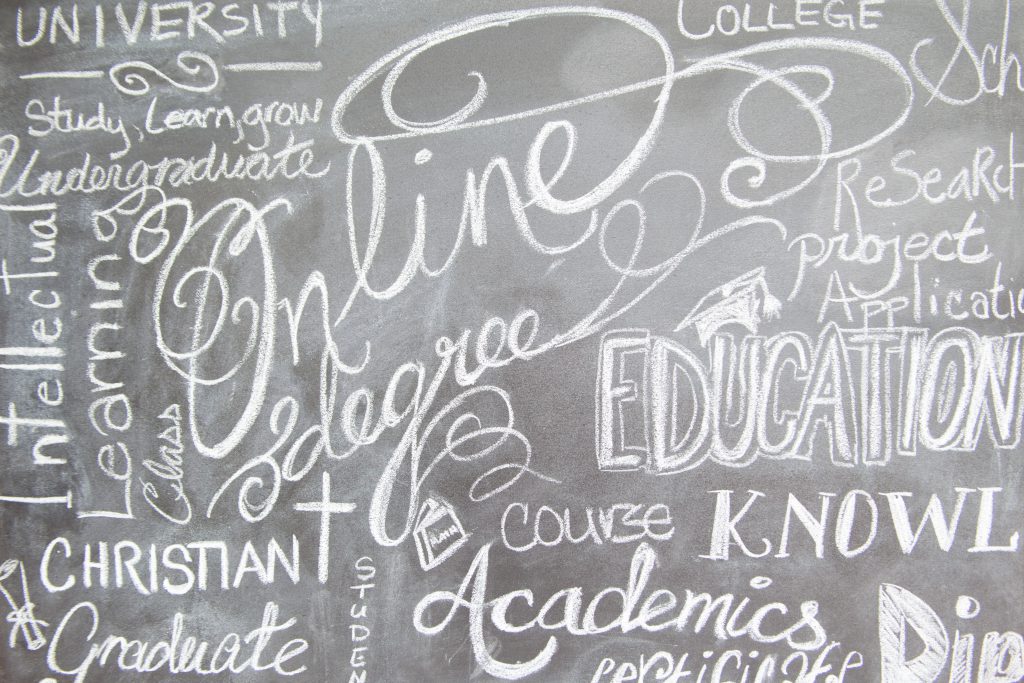 UNIVERSITY
COLLEGE
Sch
Study, Learn, grow
Undergraduate
Intellectual
Learning
Class
Online
degree
ReSeaRch
project
Applicatio
EDUCATION
course
KNOWL
CHRISTIAN
Graduate
STUDEN
Academics
certificate
Dip